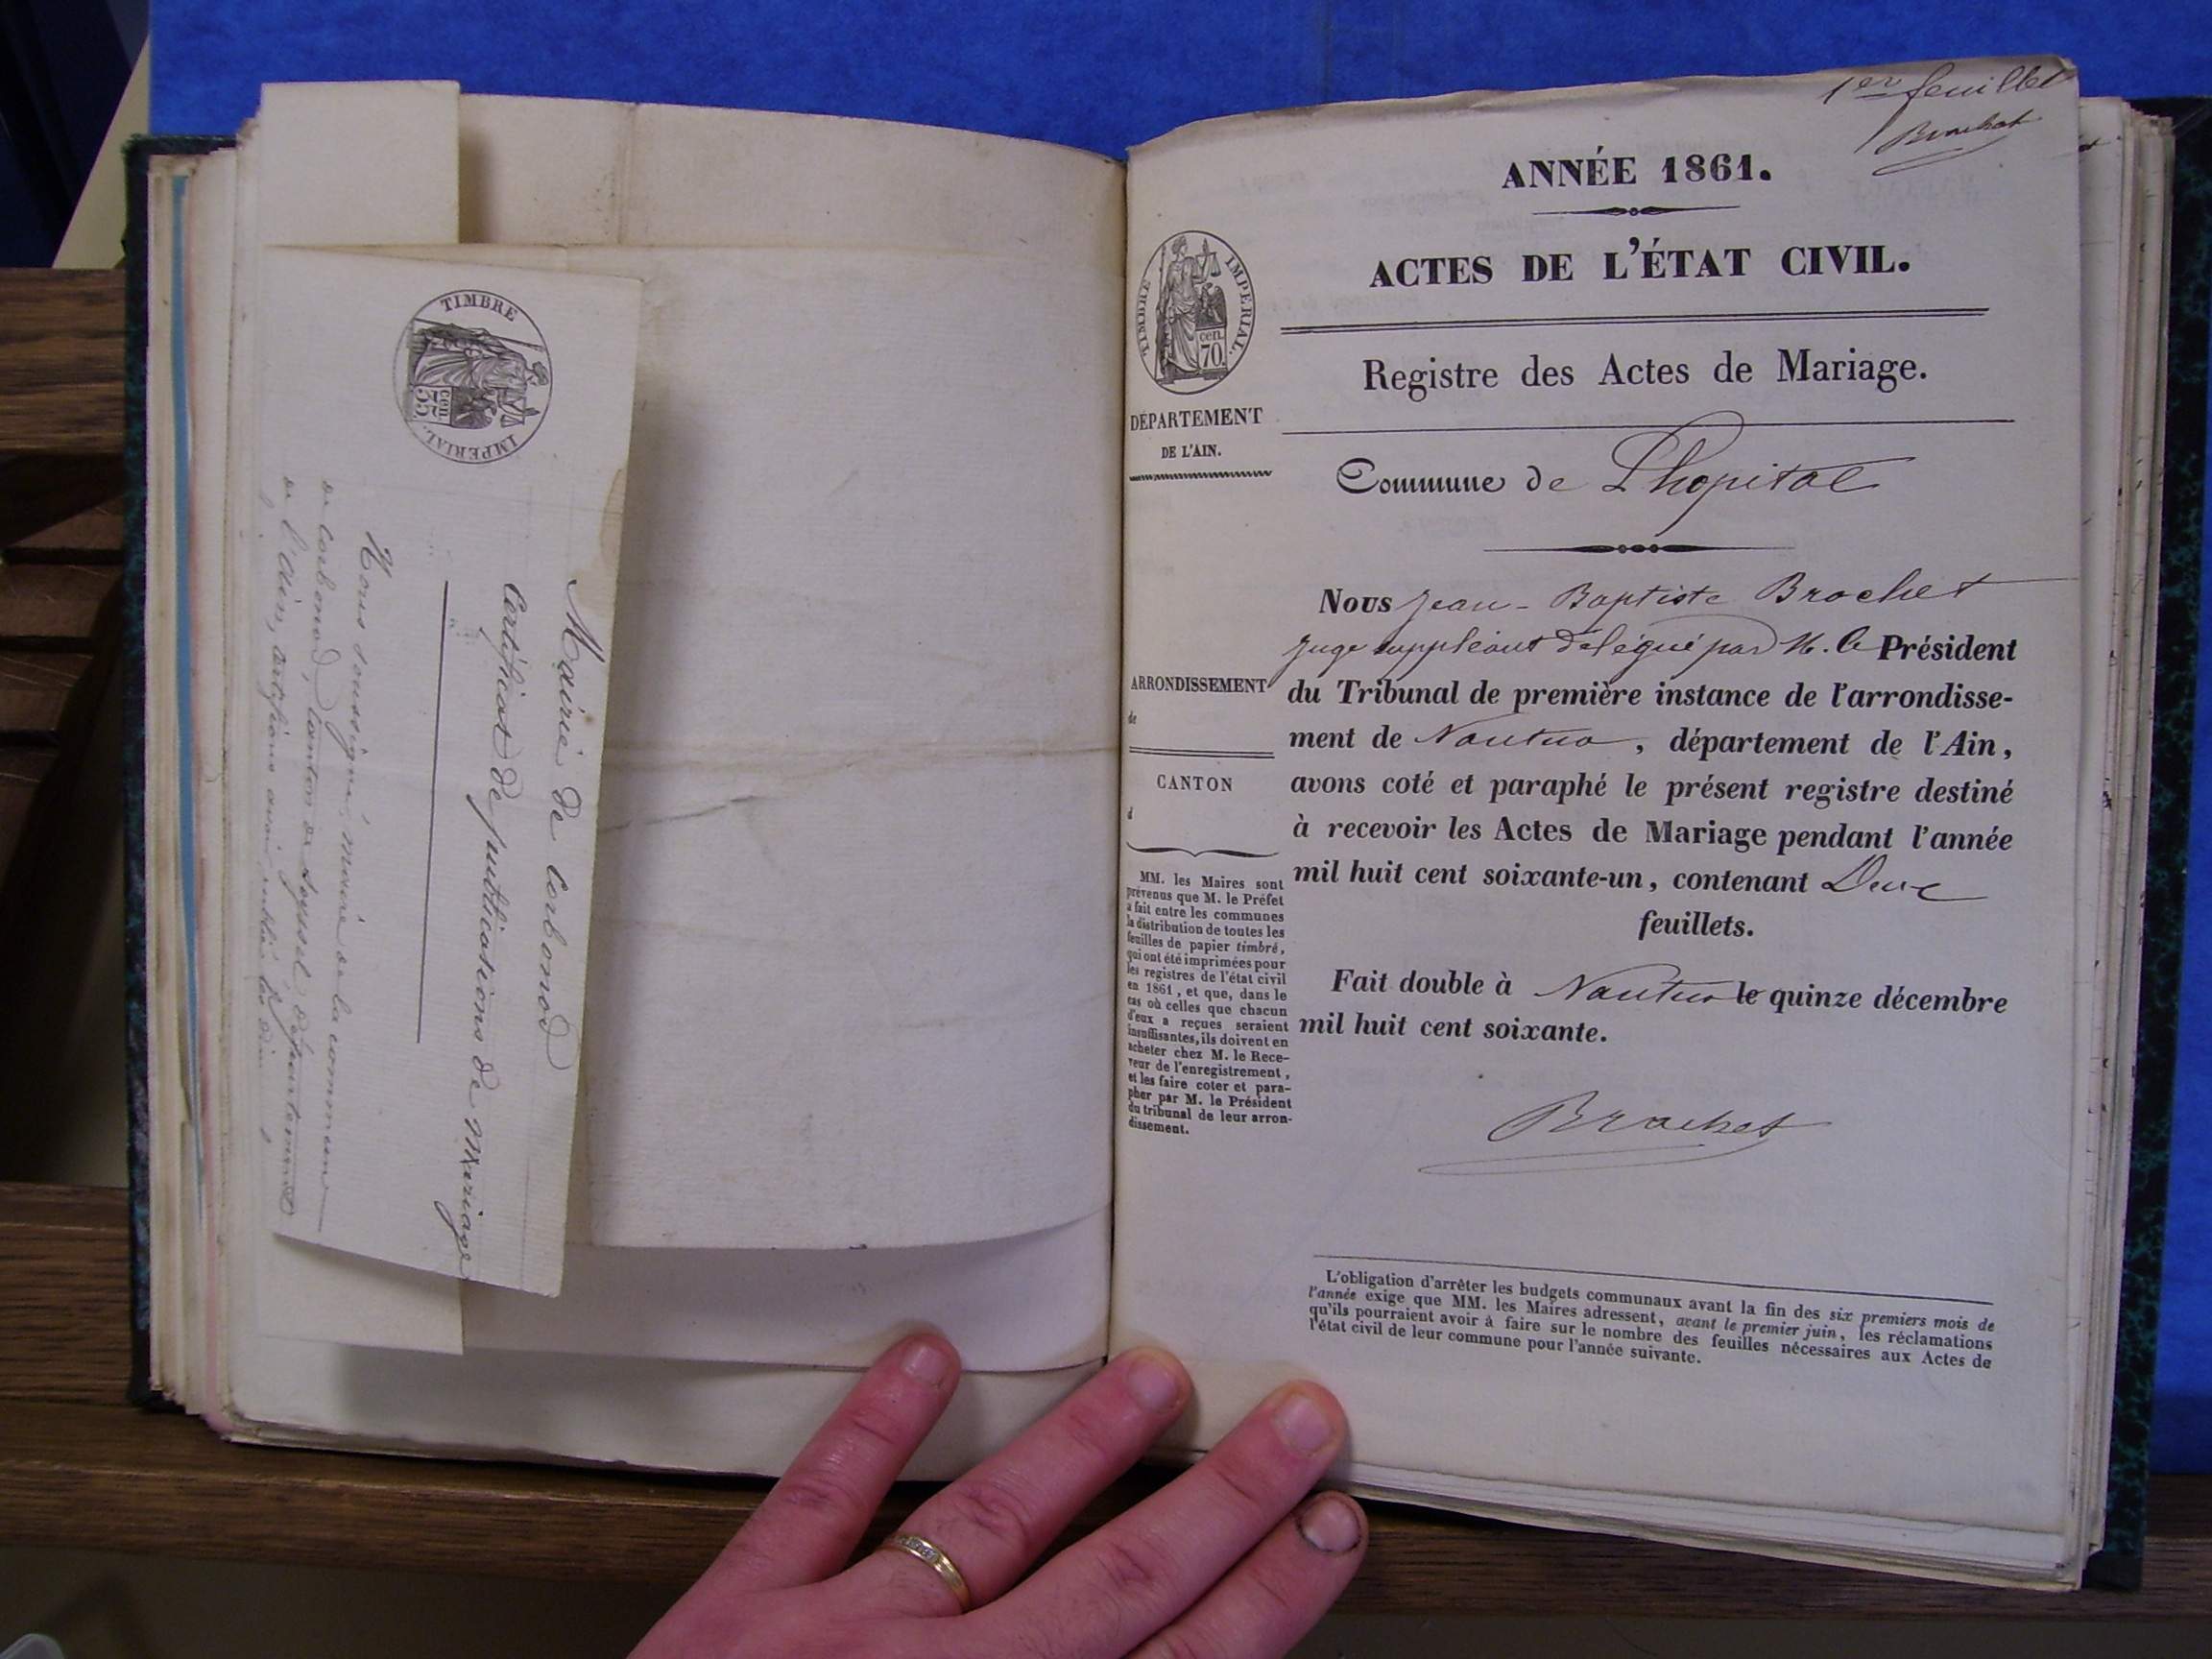 TIMBRE IMPERIAL.
cen. 35
Mairie de Corbonod
Certificat de publications de Mariage
Nous soussigné, maire de la commune
de Corbonod, canton de Seyssel, département
de l'Ain, certifions avoir publié les
1er feuillet
Brochet
ANNÉE 1861.
ACTES DE L'ÉTAT CIVIL.
TIMBRE IMPERIAL.
cen. 70.
Registre des Actes de Mariage.
DÉPARTEMENT
DE L'AIN.
Commune de Lhopital
Nous Jean-Baptiste Brochet
juge suppléant délégué par M. le Président
du Tribunal de première instance de l'arrondisse-
ment de Nantua, département de l'Ain,
avons coté et paraphé le présent registre destiné
à recevoir les Actes de Mariage pendant l'année
mil huit cent soixante-un, contenant Deux
feuillets.
Fait double à Nantua le quinze décembre
mil huit cent soixante.
Brochet
ARRONDISSEMENT
de
CANTON
d
MM. les Maires sont
prévenus que M. le Préfet
a fait entre les communes
la distribution de toutes les
feuilles de papier timbré,
qui ont été imprimées pour
les registres de l'état civil
en 1861, et que, dans le
cas où celles que chacun
d'eux a reçues seraient
insuffisantes, ils doivent en
acheter chez M. le Rece-
veur de l'enregistrement,
et les faire coter et para-
pher par M. le Président
du tribunal de leur arron-
dissement.
L'obligation d'arrêter les budgets communaux avant la fin des six premiers mois de
l'année exige que MM. les Maires adressent, avant le premier juin, les réclamations
qu'ils pourraient avoir à faire sur le nombre des feuilles nécessaires aux Actes de
l'état civil de leur commune pour l'année suivante.